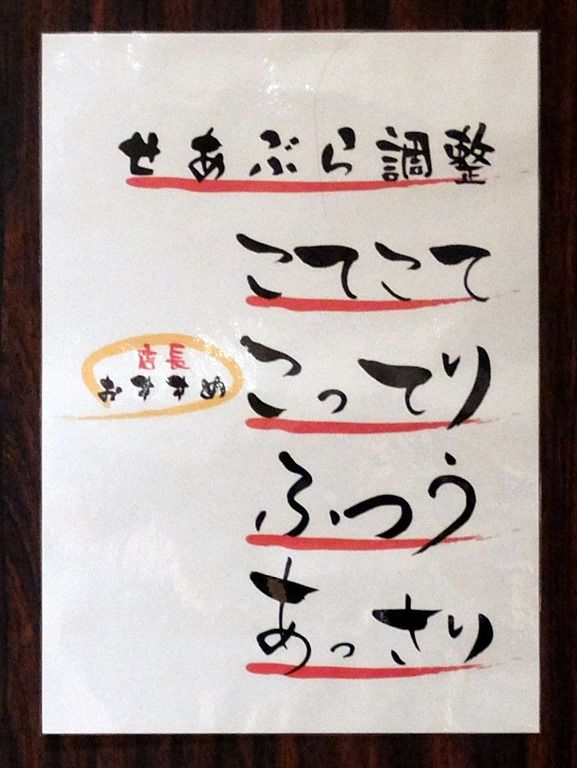 せあぶら調整
こてこて
店長
おすすめ
こってり
ふつう
あっさり